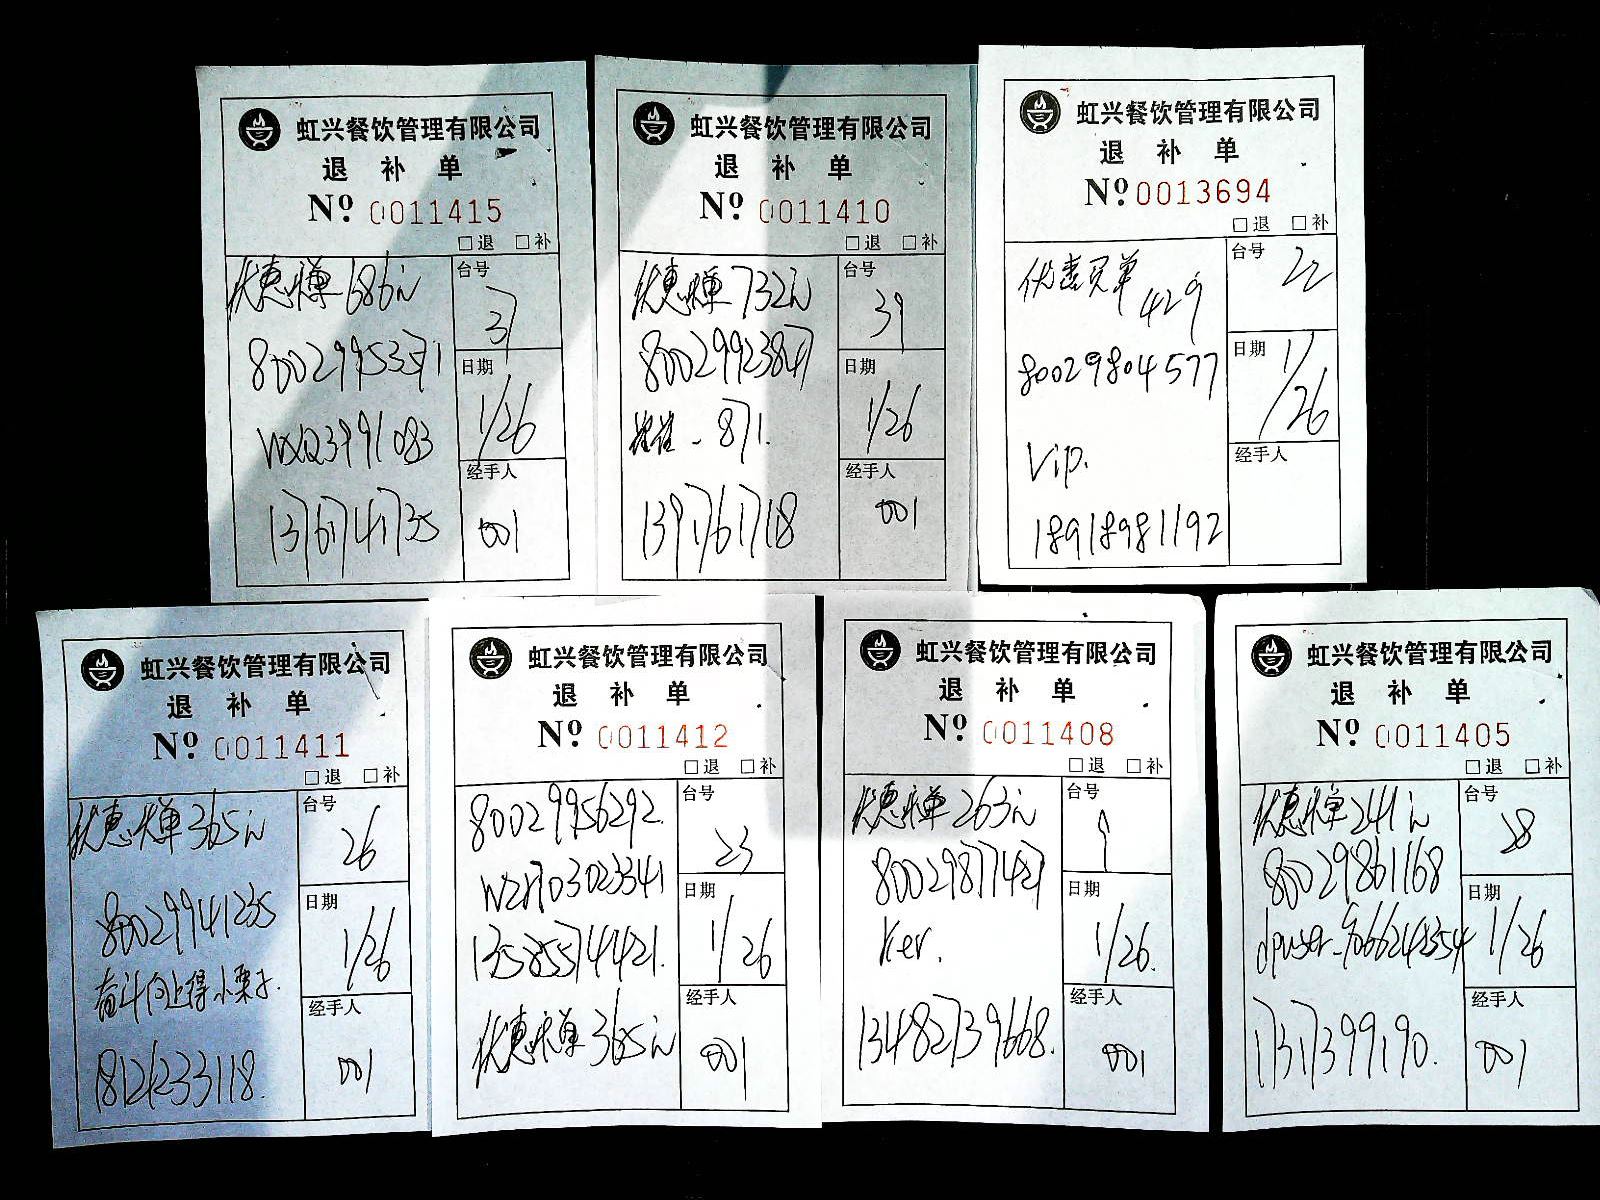 虹兴餐饮管理有限公司
退 补 单
Nº 0011415
□退 □补
优惠买单 686元
台号
37
80029953371
日期
1/26
WXQ3991083
经手人
13761741735
001
虹兴餐饮管理有限公司
退 补 单
Nº 0011410
□退 □补
优惠买单 732元
台号
39
日期
1/26
- 871.
经手人
1391761718
001
虹兴餐饮管理有限公司
退 补 单
Nº 0013694
□退 □补
优惠买单 429
台号
22
80029804577
日期
1/26
Vip.
经手人
18918981192
虹兴餐饮管理有限公司
退 补 单
Nº 0011411
□退 □补
优惠买单 365元
台号
26
80029941235
日期
1/26
奋斗向上得小栗子.
经手人
18121233118.
001
虹兴餐饮管理有限公司
退 补 单
Nº 0011412
□退 □补
80029956292.
台号
23
日期
1/26
13585574421.
经手人
优惠买单 365元
001
虹兴餐饮管理有限公司
退 补 单
Nº 0011408
□退 □补
优惠买单 263元
台号
9
80029877427
日期
1/26.
Ker.
经手人
13482739668.
001
虹兴餐饮管理有限公司
退 补 单
Nº 0011405
□退 □补
优惠买单 241元
台号
28
80029861168
日期
1/26
dpuser_9066242354
经手人
17317399190.
001